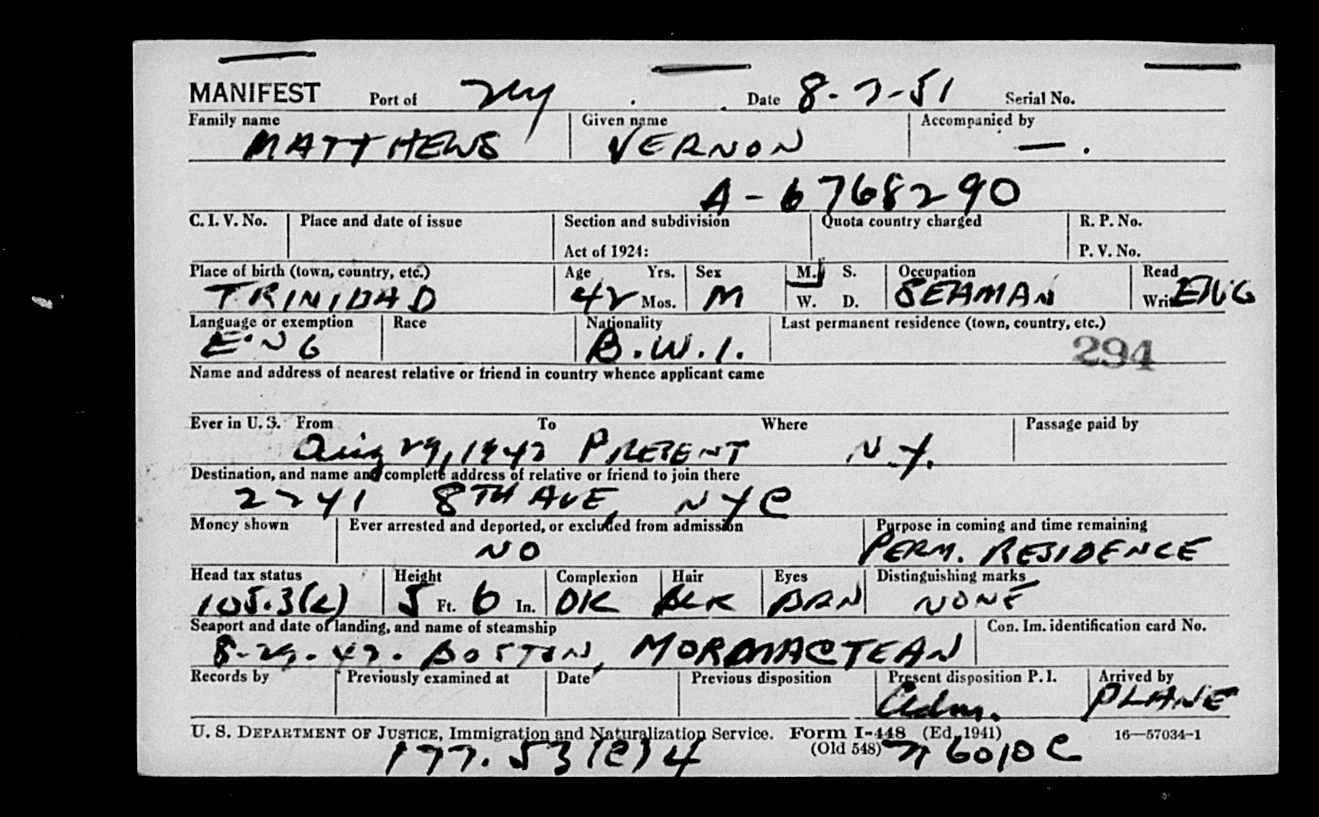 MANIFEST Port of NY Date 8-7-51 Serial No.
Family name Given name Accompanied by
MATTHEWS VERNON — .
A-6768290
C. I. V. No. Place and date of issue Section and subdivision Quota country charged R. P. No.
Act of 1924: P. V. No.
Place of birth (town, country, etc.) Age Yrs. Sex M. S. Occupation Read
TRINIDAD 42 Mos. M W. D. SEAMAN Write ENG
Language or exemption Race Nationality Last permanent residence (town, country, etc.)
ENG B.W.I. 294
Name and address of nearest relative or friend in country whence applicant came
Ever in U. S. From To Where Passage paid by
Aug 29, 1942 PRESENT N.Y.
Destination, and name and complete address of relative or friend to join there
2241 8TH AVE, NYC
Money shown Ever arrested and deported, or excluded from admission Purpose in coming and time remaining
NO PERM. RESIDENCE
Head tax status Height Complexion Hair Eyes Distinguishing marks
105.3(c) 5 Ft. 6 In. DK BLK BRN NONE
Seaport and date of landing, and name of steamship Con. Im. identification card No.
8-29-42. BOSTON, MORMACTEAN
Records by Previously examined at Date Previous disposition Present disposition P. I. Arrived by
Adm. PLANE
U. S. DEPARTMENT OF JUSTICE, Immigration and Naturalization Service. Form I-448 (Ed. 1941) 16—57034-1
(Old 548)
177.53(C)4 6010C